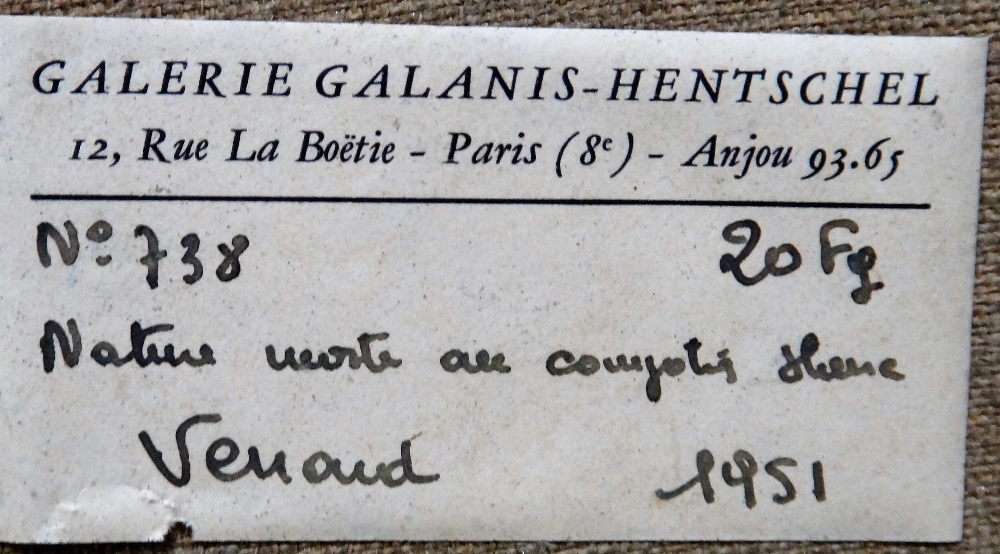 GALERIE GALANIS-HENTSCHEL
12, Rue La Boëtie - Paris (8e) - Anjou 93.65
No. 738 20 Fg
Nature morte au compotier
Venard 1951